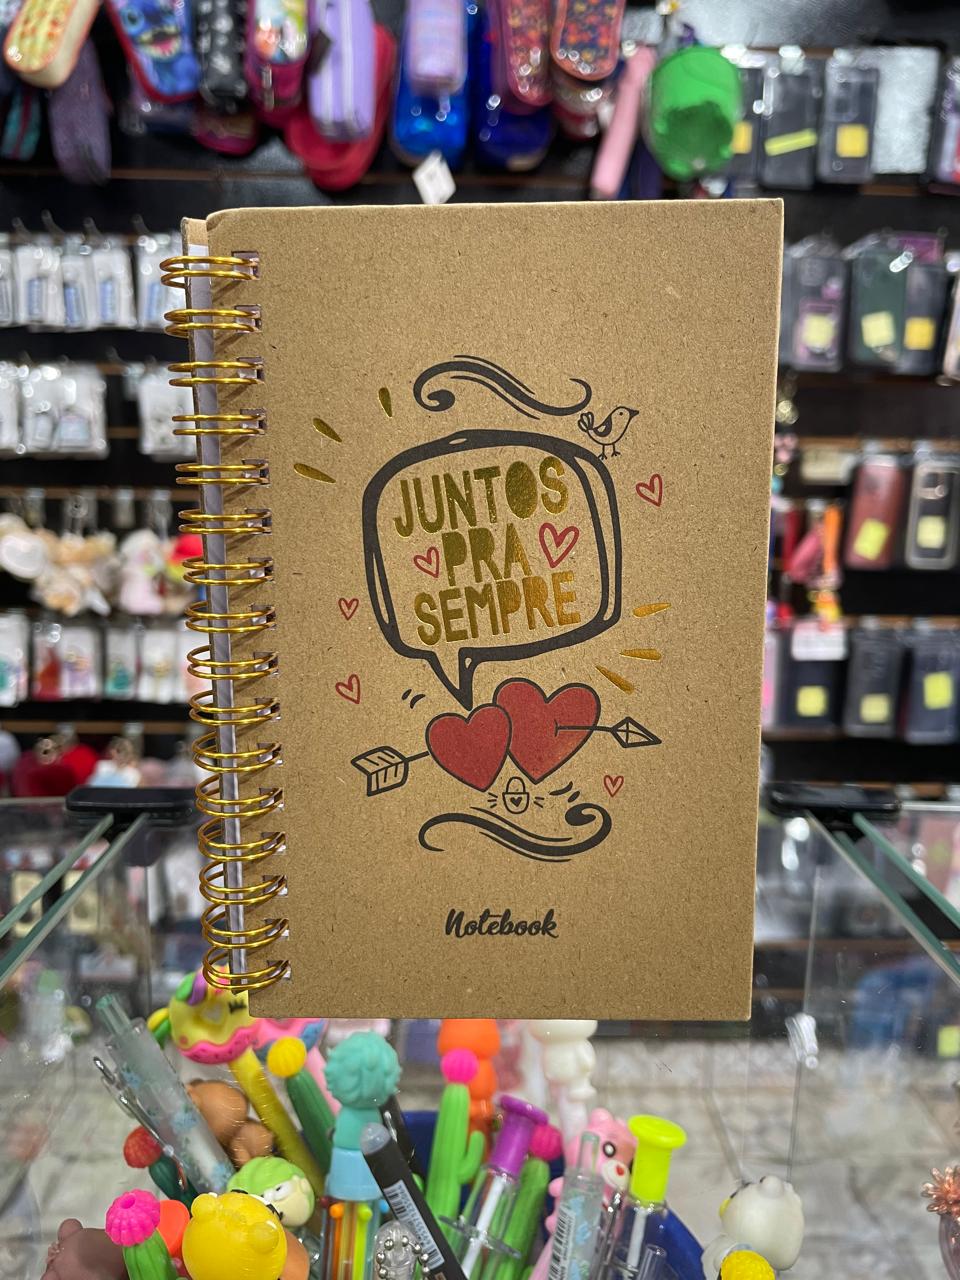 JUNTOS
PRA
SEMPRE
Notebook